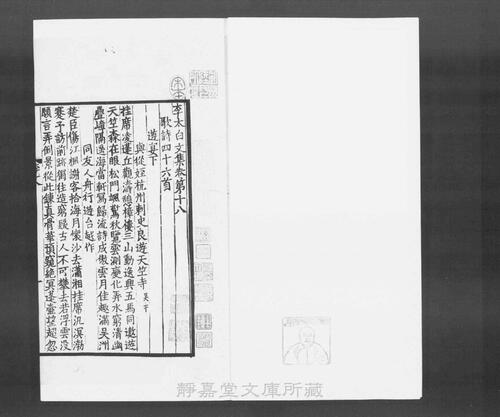 李太白文集卷第十八
歌詩四十六首
遊宴下
與從姪杭州刺史良遊天竺寺
挂席凌蓬丘觀濤憩樟樓三山動逸興五馬同遨遊
天竺森在眼松門颯驚秋覽雲測變化弄水窮清幽
疊嶂隔遙海當軒寫歸流詩成傲雲月佳趣滿吳洲
同友人舟行遊台越作
楚臣傷江楓謝客拾海月懷沙去瀟湘挂席泛溟渤
蹇予訪前跡獨往造窮髮古人不可攀去若浮雲沒
願言弄倒景從此鍊真骨華頂窺絕冥蓬壺望超忽
靜嘉堂文庫所藏